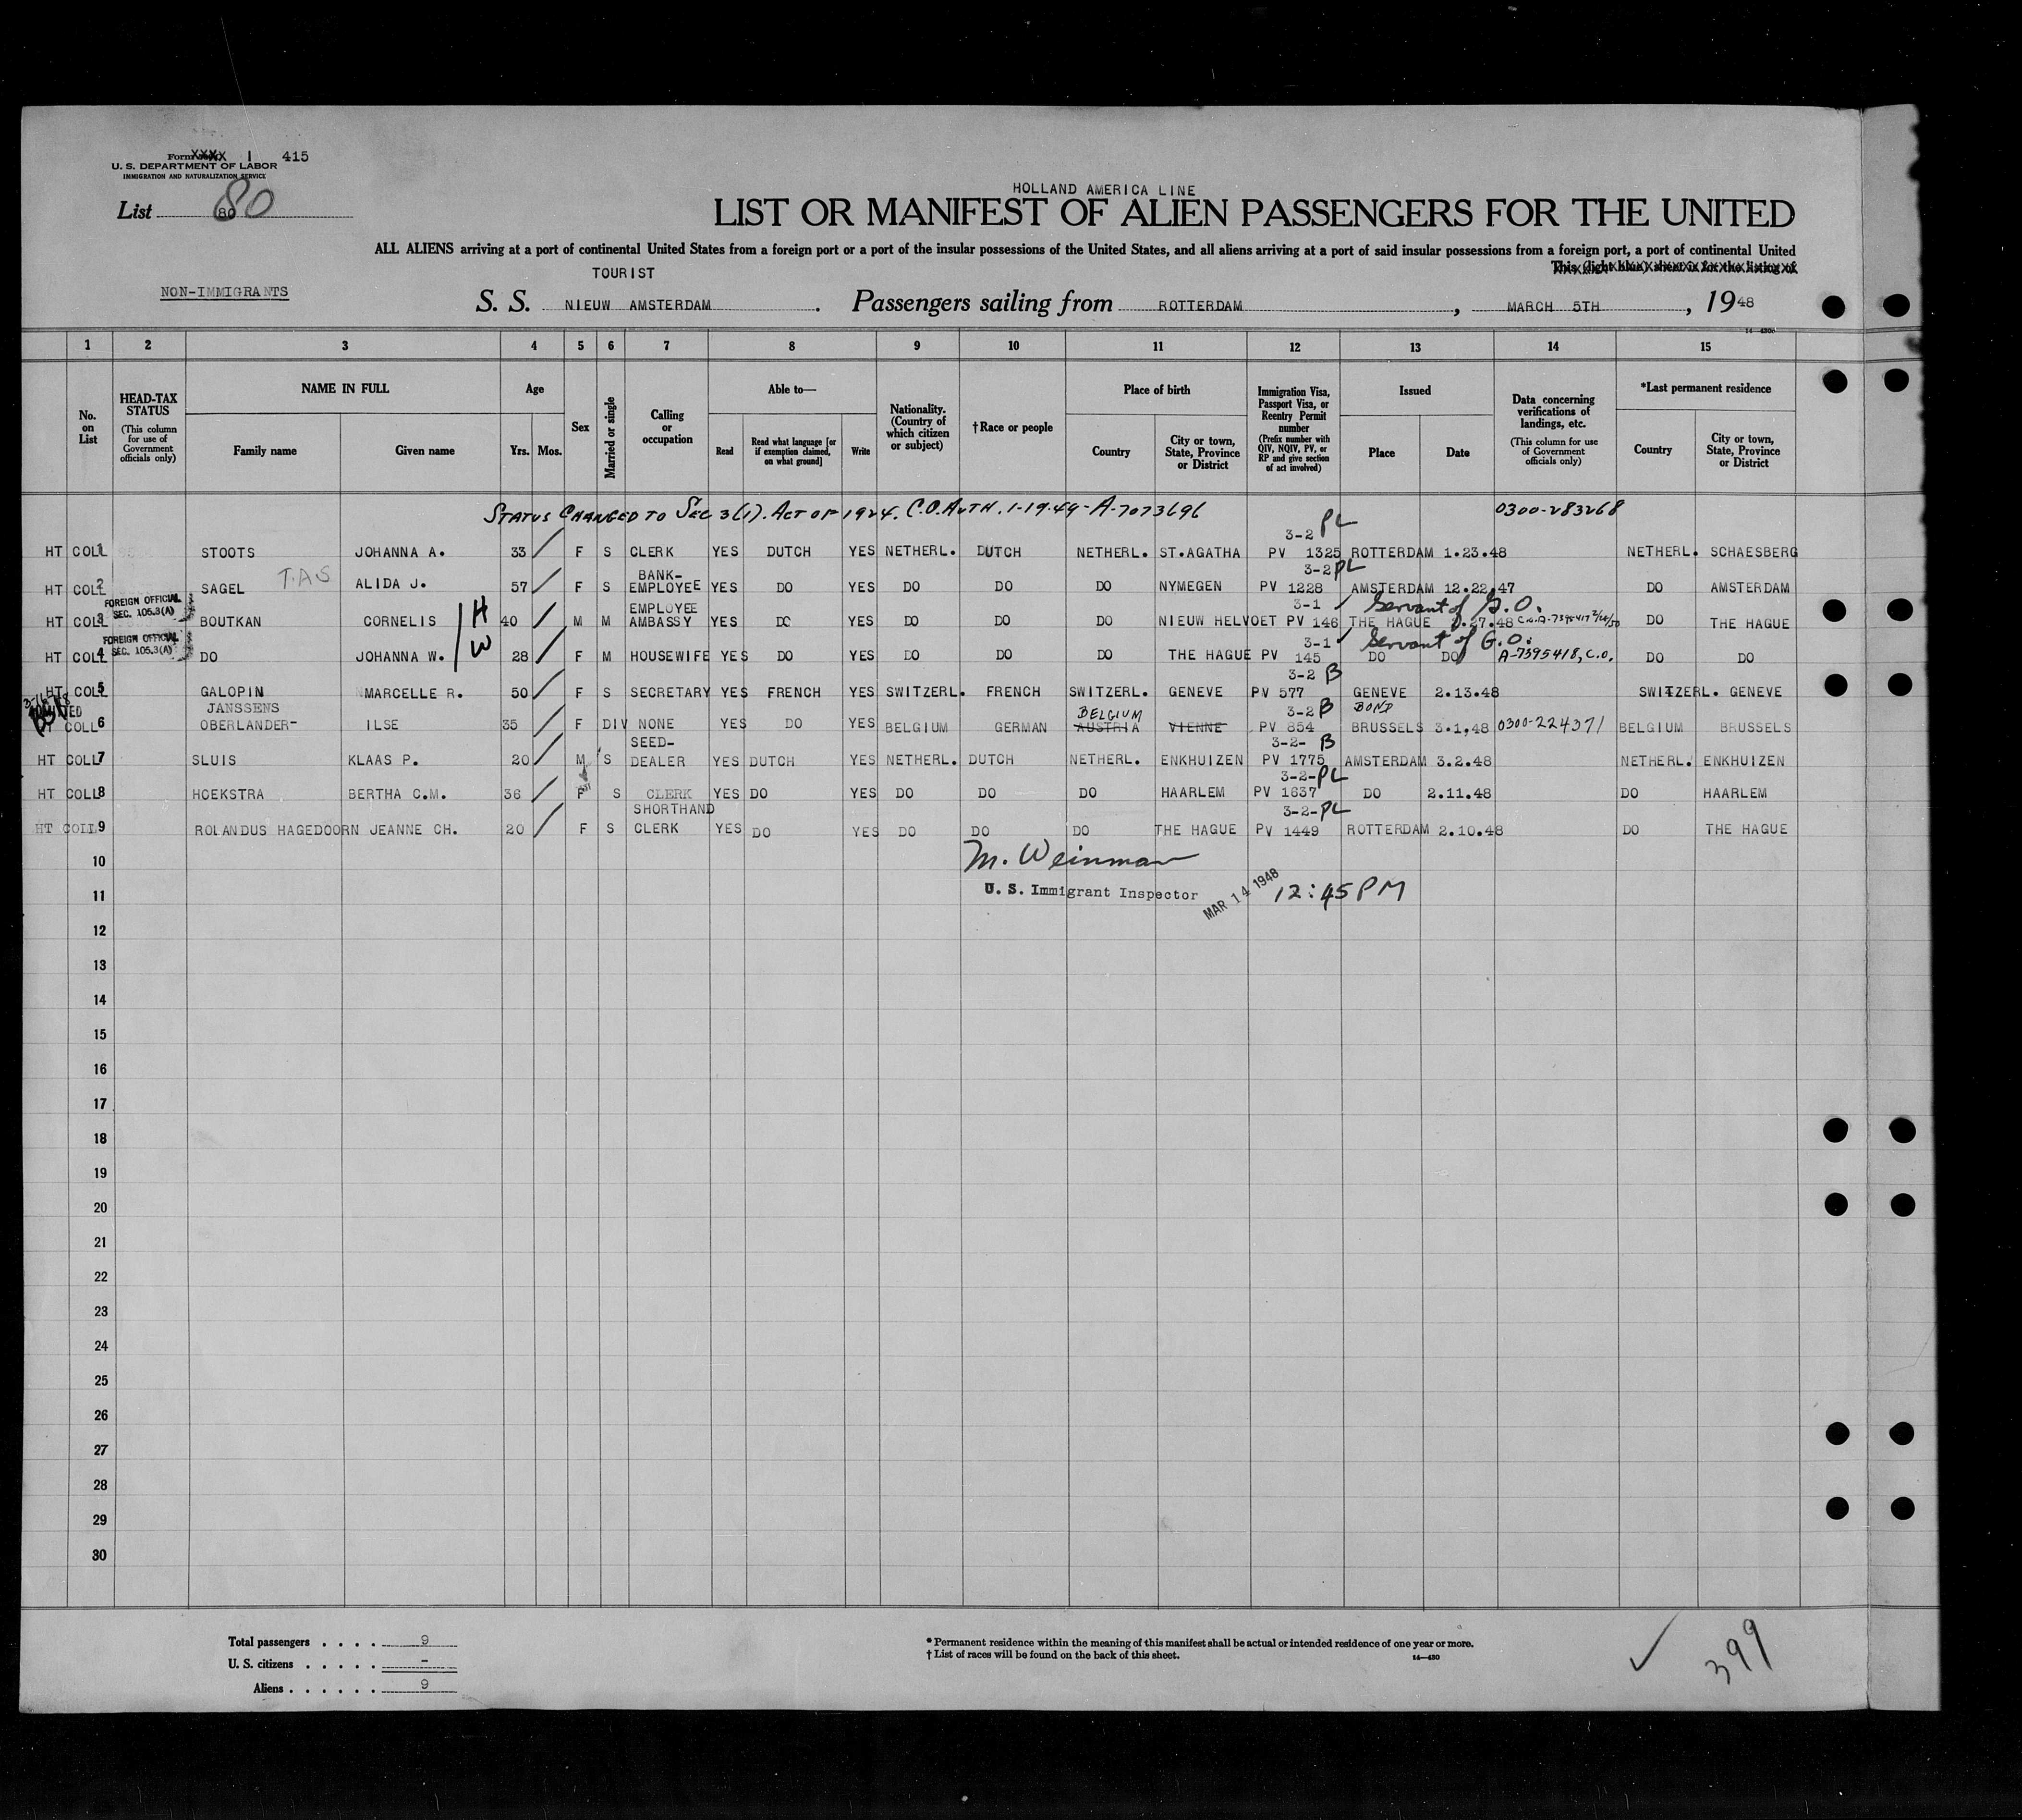 Form XXXX I 415
U. S. DEPARTMENT OF LABOR
IMMIGRATION AND NATURALIZATION SERVICE
List 80 80
HOLLAND AMERICA LINE
LIST OR MANIFEST OF ALIEN PASSENGERS FOR THE UNITED
ALL ALIENS arriving at a port of continental United States from a foreign port or a port of the insular possessions of the United States, and all aliens arriving at a port of said insular possessions from a foreign port, a port of continental United
This (light blue) sheet is for the listing of
TOURIST
NON-IMMIGRANTS
S. S. NIEUW AMSTERDAM. Passengers sailing from ROTTERDAM, MARCH 5TH, 1948
1 2 3 4 5 6 7 8 9 10 11 12 13 14 15
No. on List
HEAD-TAX STATUS (This column for use of Government officials only)
NAME IN FULL
Family name Given name
Age
Yrs. Mos.
Sex
Married or single
Calling or occupation
Able to—
Read
Read what language [or if exemption claimed, on what ground]
Write
Nationality. (Country of which citizen or subject)
†Race or people
Place of birth
Country
City or town, State, Province or District
Immigration Visa, Passport Visa, or Reentry Permit number (Prefix number with QIV, NQIV, PV, or RP and give section of act involved)
Issued
Place Date
Data concerning verifications of landings, etc. (This column for use of Government officials only)
*Last permanent residence
Country
City or town, State, Province or District
STATUS CHANGED TO SEC 3(1). ACT OF 1924. C.O. AUTH. 1-19-49-A-7073696 0300-283268
3-2 PL
HT COLL 1 STOOTS JOHANNA A. 33 F S CLERK YES DUTCH YES NETHERL. DUTCH NETHERL. ST.AGATHA PV 1325 ROTTERDAM 1.23.48 NETHERL. SCHAESBERG
3-2 PL
HT COLL 2 SAGEL T.A.S ALIDA J. 57 F S BANK-EMPLOYEE YES DO YES DO DO DO NYMEGEN PV 1228 AMSTERDAM 12.22.47 DO AMSTERDAM
FOREIGN OFFICIAL SEC. 105.3(A)
3-1 Servant of G.O.
HT COLL 3 BOUTKAN CORNELIS H 40 M M EMPLOYEE AMBASSY YES DO YES DO DO DO NIEUW HELVOET PV 146 THE HAGUE .27.48 DO THE HAGUE
FOREIGN OFFICIAL SEC. 105.3(A)
3-1 Servant of G.O.
HT COLL 4 DO JOHANNA W. W 28 F M HOUSEWIFE YES DO YES DO DO DO THE HAGUE PV 145 DO DO A-7395418, C.O. DO DO
3-2 B
HT COLL 5 GALOPIN MARCELLE R. 50 F S SECRETARY YES FRENCH YES SWITZERL. FRENCH SWITZERL. GENEVE PV 577 GENEVE 2.13.48 SWITZERL. GENEVE
ADMITTED
JANSSENS BELGIUM 3-2 B BOND
COLL 6 OBERLANDER- ILSE 35 F DIV NONE YES DO YES BELGIUM GERMAN AUSTRIA VIENNE PV 854 BRUSSELS 3.1.48 0300-224371 BELGIUM BRUSSELS
3-2- B
HT COLL 7 SLUIS KLAAS P. 20 M S SEED-DEALER YES DUTCH YES NETHERL. DUTCH NETHERL. ENKHUIZEN PV 1775 AMSTERDAM 3.2.48 NETHERL. ENKHUIZEN
3-2-PL
HT COLL 8 HOEKSTRA BERTHA C.M. 36 F S CLERK YES DO YES DO DO DO HAARLEM PV 1637 DO 2.11.48 DO HAARLEM
3-2-PL
HT COLL 9 ROLANDUS HAGEDOORN JEANNE CH. 20 F S SHORTHAND CLERK YES DO YES DO DO DO THE HAGUE PV 1449 ROTTERDAM 2.10.48 DO THE HAGUE
10
M. Weinman
11
U. S. Immigrant Inspector MAR 14 1948 12:45 PM
12
13
14
15
16
17
18
19
20
21
22
23
24
25
26
27
28
29
30
Total passengers . . . . 9
U. S. citizens . . . . . -
Aliens . . . . . . 9
* Permanent residence within the meaning of this manifest shall be actual or intended residence of one year or more.
† List of races will be found on the back of this sheet.
14—430
399